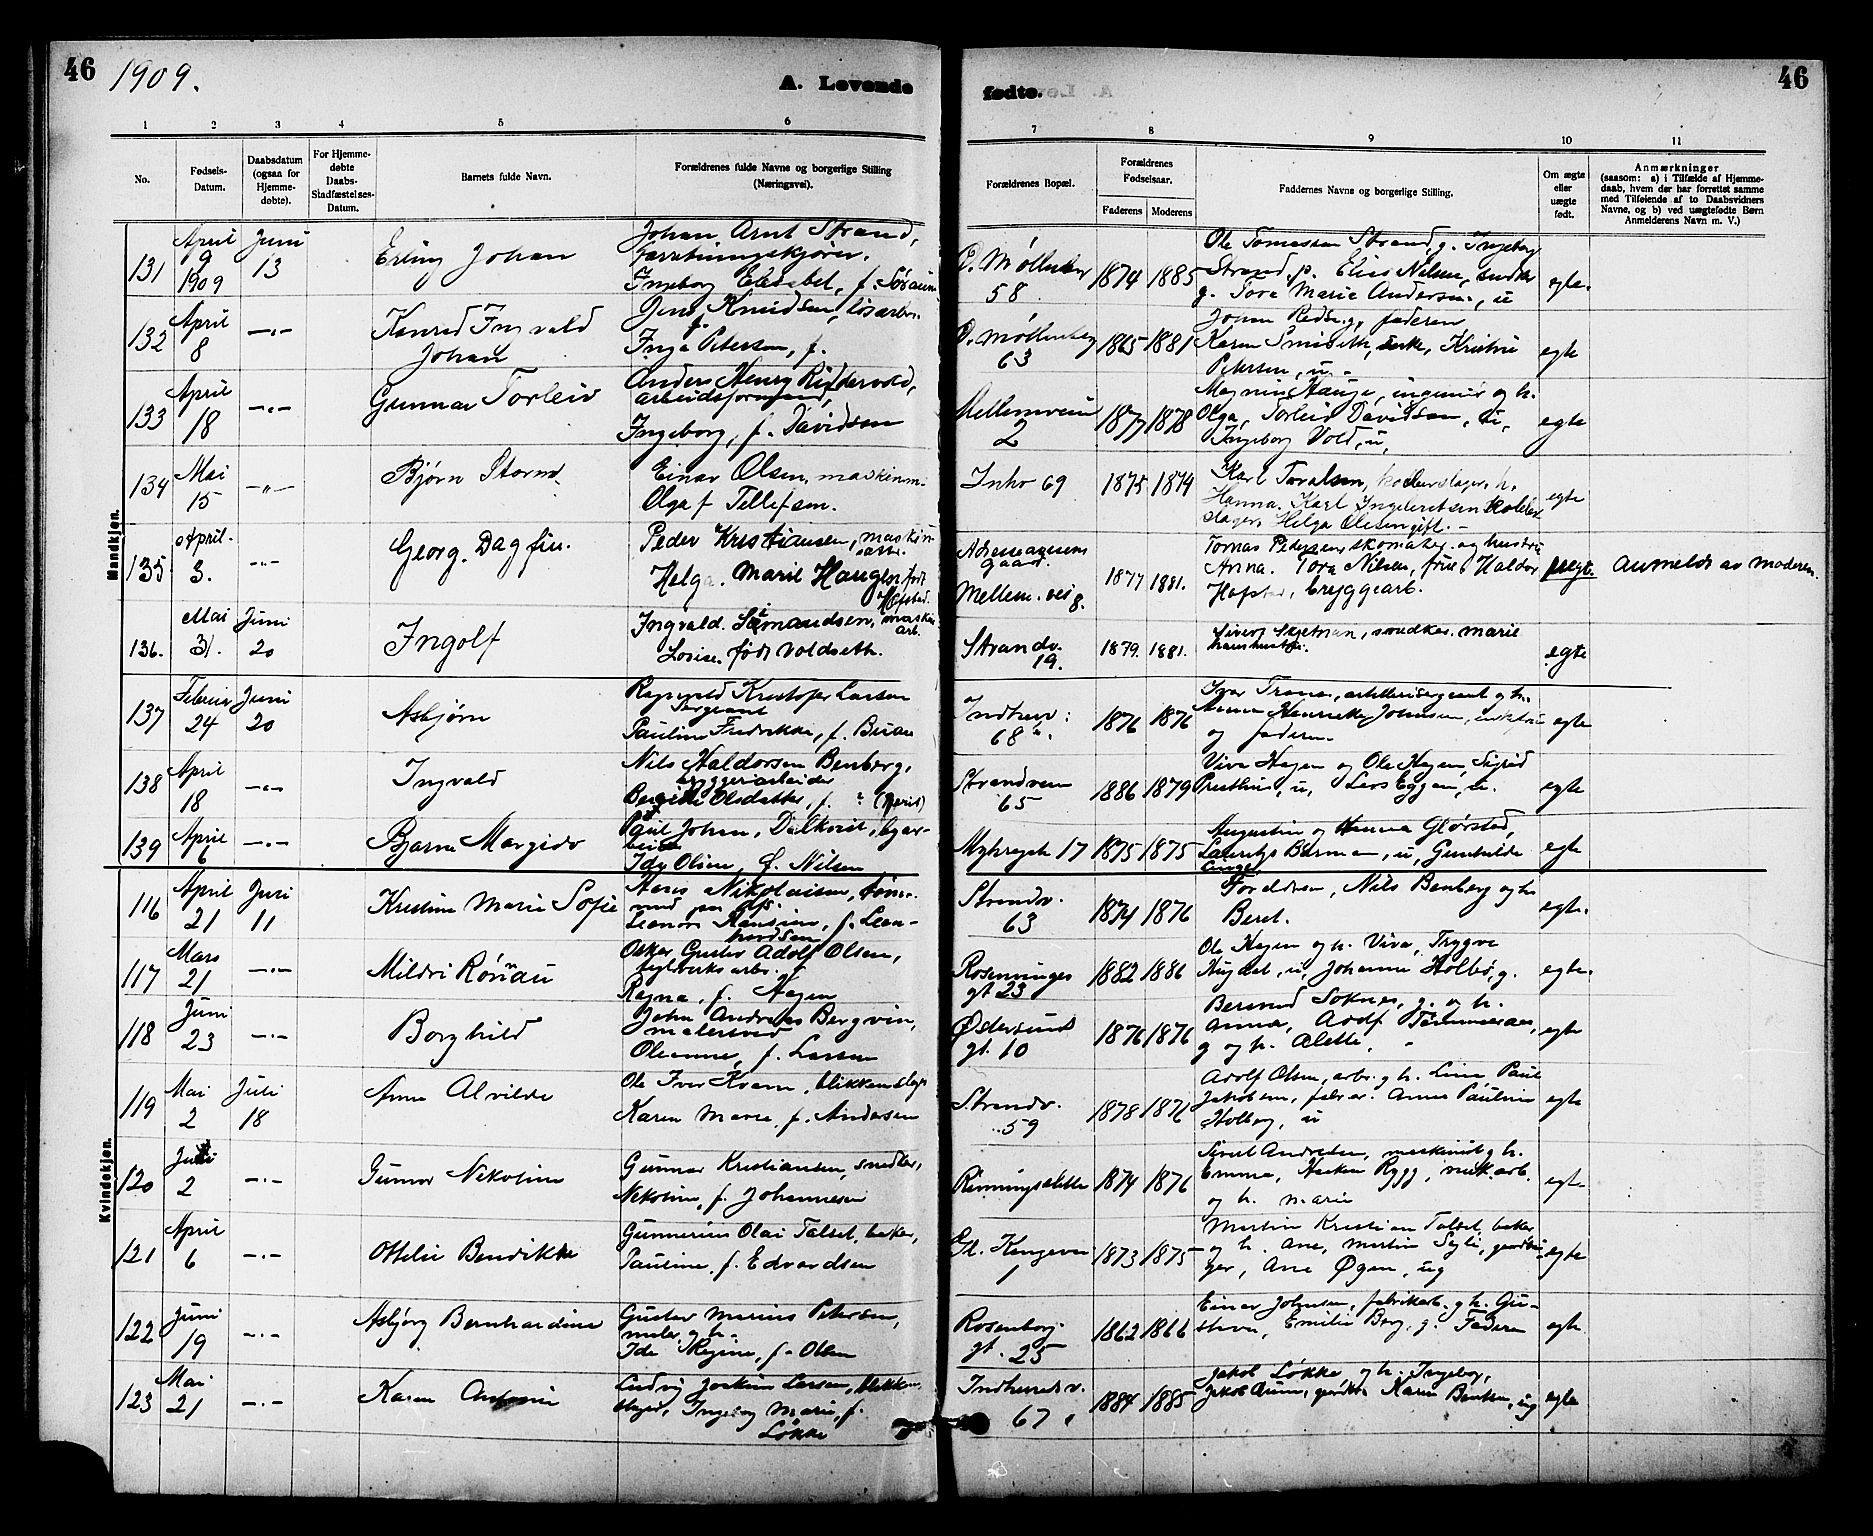 46
1909.
A. Levende
fødte.
46
1 2 3 4 5 6 7 8 9 10 11
No.
Fødsels-
Datum.
Daabsdatum
(ogsaa for
Hjemme-
døbte).
For Hjemme-
døbte
Daabs-
Stadfæstelses-
Datum.
Barnets fulde Navn.
Forældrenes fulde Navne og borgerlige Stilling
(Næringsvei).
Forældrenes Bopæl.
Forældrenes
Fødselsaar.
Faderens Moderens
Faddernes Navne og borgerlige Stilling.
Om ægte
eller
uægte
født.
Anmærkninger
(saasom: a) i Tilfælde af Hjemme-
daab, hvem der har forrettet samme
med Tilføiende af to Daabsvidners
Navne, og b) ved uægtefødte Børn
Anmelderens Navn m. V.)
Mandkjøn.
131 April 9 1909 Juni 13 Erling Johan
Johan Arnt Strand,
Ingeborg Elisabet, f.
58 1874 1885
Ole Tomassen Strand, g. Ingeborg
Strand, g. Elise Nilsen,
g. Tora Marie Andersen, u
egte.
132 April 8 -"- Konrad Ingvald
Johan
Jens Knudsen, løsarb.
Inga Petersen, f.
Ø. Møllenberg
63 1865 1881
faderen
Karen Smiseth, enke, Kristine
Petersen, u.
egte
133 April 18 -"- Gunnar Torleiv
Anders Henry Riddervold,
arbeidsformand,
Ingeborg, f. Davidsen
Mellemveien
2 1877 1878
Magnus Hauge, ingeniør og h.
Olga, Torleiv Davidsen, u,
Ingeborg Vold, u,
egte
134 Mai 15 -"- Bjørn Storm
Einar Olsen, maskinm.
Olga f Tellefsen.
Inhv 69 1875 1874
Karl Toralsen, h.
Hanna. Karl Ingebretsen
Helga Olesen gift.
egte
135 April 3. -"- Georg. Dagfin.
Peder Kristiansen, maskin
Helga. Marie Haugen født
Hofstad.
gaard.
Mellem. vei 8. 1877 1881.
Tomas Pedersen, skomaker. og hustru
Anna. Tora Nilsen, frue. Haldor
Hofstad, bryggearb.
uegt. Anmeldt av moderen.
136. Mai 31. Juni 20 Ingolf
Ingvald. Simondsen, maskin
arb.
Lovise. født Voldseth.
Strandv.
19. 1879. 1881.
Sivert Skjetman, smedker. marie
hans hustru.
egte
137 Februar 24 Juni 20 Asbjørn
Ragnvald Kristofer Larsen
Sergeant
Pauline Fredrikke, f. Buan
Indherv:
68 1876 1876
Ivar Trana, artillerisergeant og h.
Anna Henrikke Johnsen,
og faderen
egte
138 April 18 -"- Ingvald
Nils Haldorsen Benberg,
bryggeriarbeider
Beritte Olsdatter, f. ? (Berit)
Strandveien
65 1886 1879
Viva Hagen og Ole Hagen, Sigrid
Presthus, u, Lars Eggen, u.
egte
139 April 6 -"- Bjarne Margido
Paul Johan, Dalkvist, byar-
beider
Ida Olsen, f. Nilsen
17 1875 1875
Augustin og Hanna Glørstad,
Lauritz Burman, u, Gunhilde
egte
Kvindekjøn.
116 April 21 Juni 11 Kristine Marie Sofie
Hans Nikolaisen,
Leonora Hansine, f. Leon-
hardsen
Strandv.
63 1874 1876
Foreldrene, Nils Benberg og h.
Beret.
egte.
117 Mars 21 -"- Mildri Rønnau
Oskar Gustav Adolf Olsen,
teglverksarb.
Ragna, f. Hagen
Rosenvinges
gt 23 1882 1886
Ole Hagen og h. Viva, Trygve
u, Johanna Holbø, g.
egte.
118 Juni 23 -"- Borghild
John Andreas Bergvin,
malersvend
Oleanne, f. Larsen
Østersunds
gt. 10 1876 1876
Bernund Soknes, g. og h.
Anna, Adolf
g og h. Alette,
egte
119 Mai 2 Juli 18 Anna Alvilde
Ole Iver Kvam, blikkenslager
Karen Marie, f. Andersen
Strandv.
59 1878 1876
Adolf Olsen, arb. g h. Lina Paul
Jakobsen, Anna Pauline
Holberg, u
egte
120 2 -"- Gunvor Nikoline
Gunnar Kristiansen, snedker,
Nikoline, f. Johannesen
Rønningsletta 1874 1876
Sivert Andersen, maskinist g h.
Emma, Haakon Rygg, mek.arb.
og h. Marie
egte
121 April 6 -"- Ottilie Bendikke
Gunnerius Olai Talset, baker,
Pauline, f. Edvardsen
Gl. Kongevei
1 1873 1875
Martin Kristian Talset, baker
og h. Ane, Martin
Ane Øgan, ug
egte
122 Juni 19 -"- Asbjørg Bernhardine
Gustav Marius Petersen,
maler, g h.
Ida Regine, f. Olsen
Rosenborg-
gt. 25 1862 1866
Einar Johnsen, fabrikarb. g h. Gu-
stava, Emilie Berg, g. Faderen
egte
123 Mai 21 -"- Karen Antonie
Ludvig Joakim Larsen, blikken-
slager, Ingeborg Marie, f.
Løkke
Indherredsv.
67 1884 1885
Jakob Løkke og h. Ingeborg,
Karen Bentsen, ug
egte